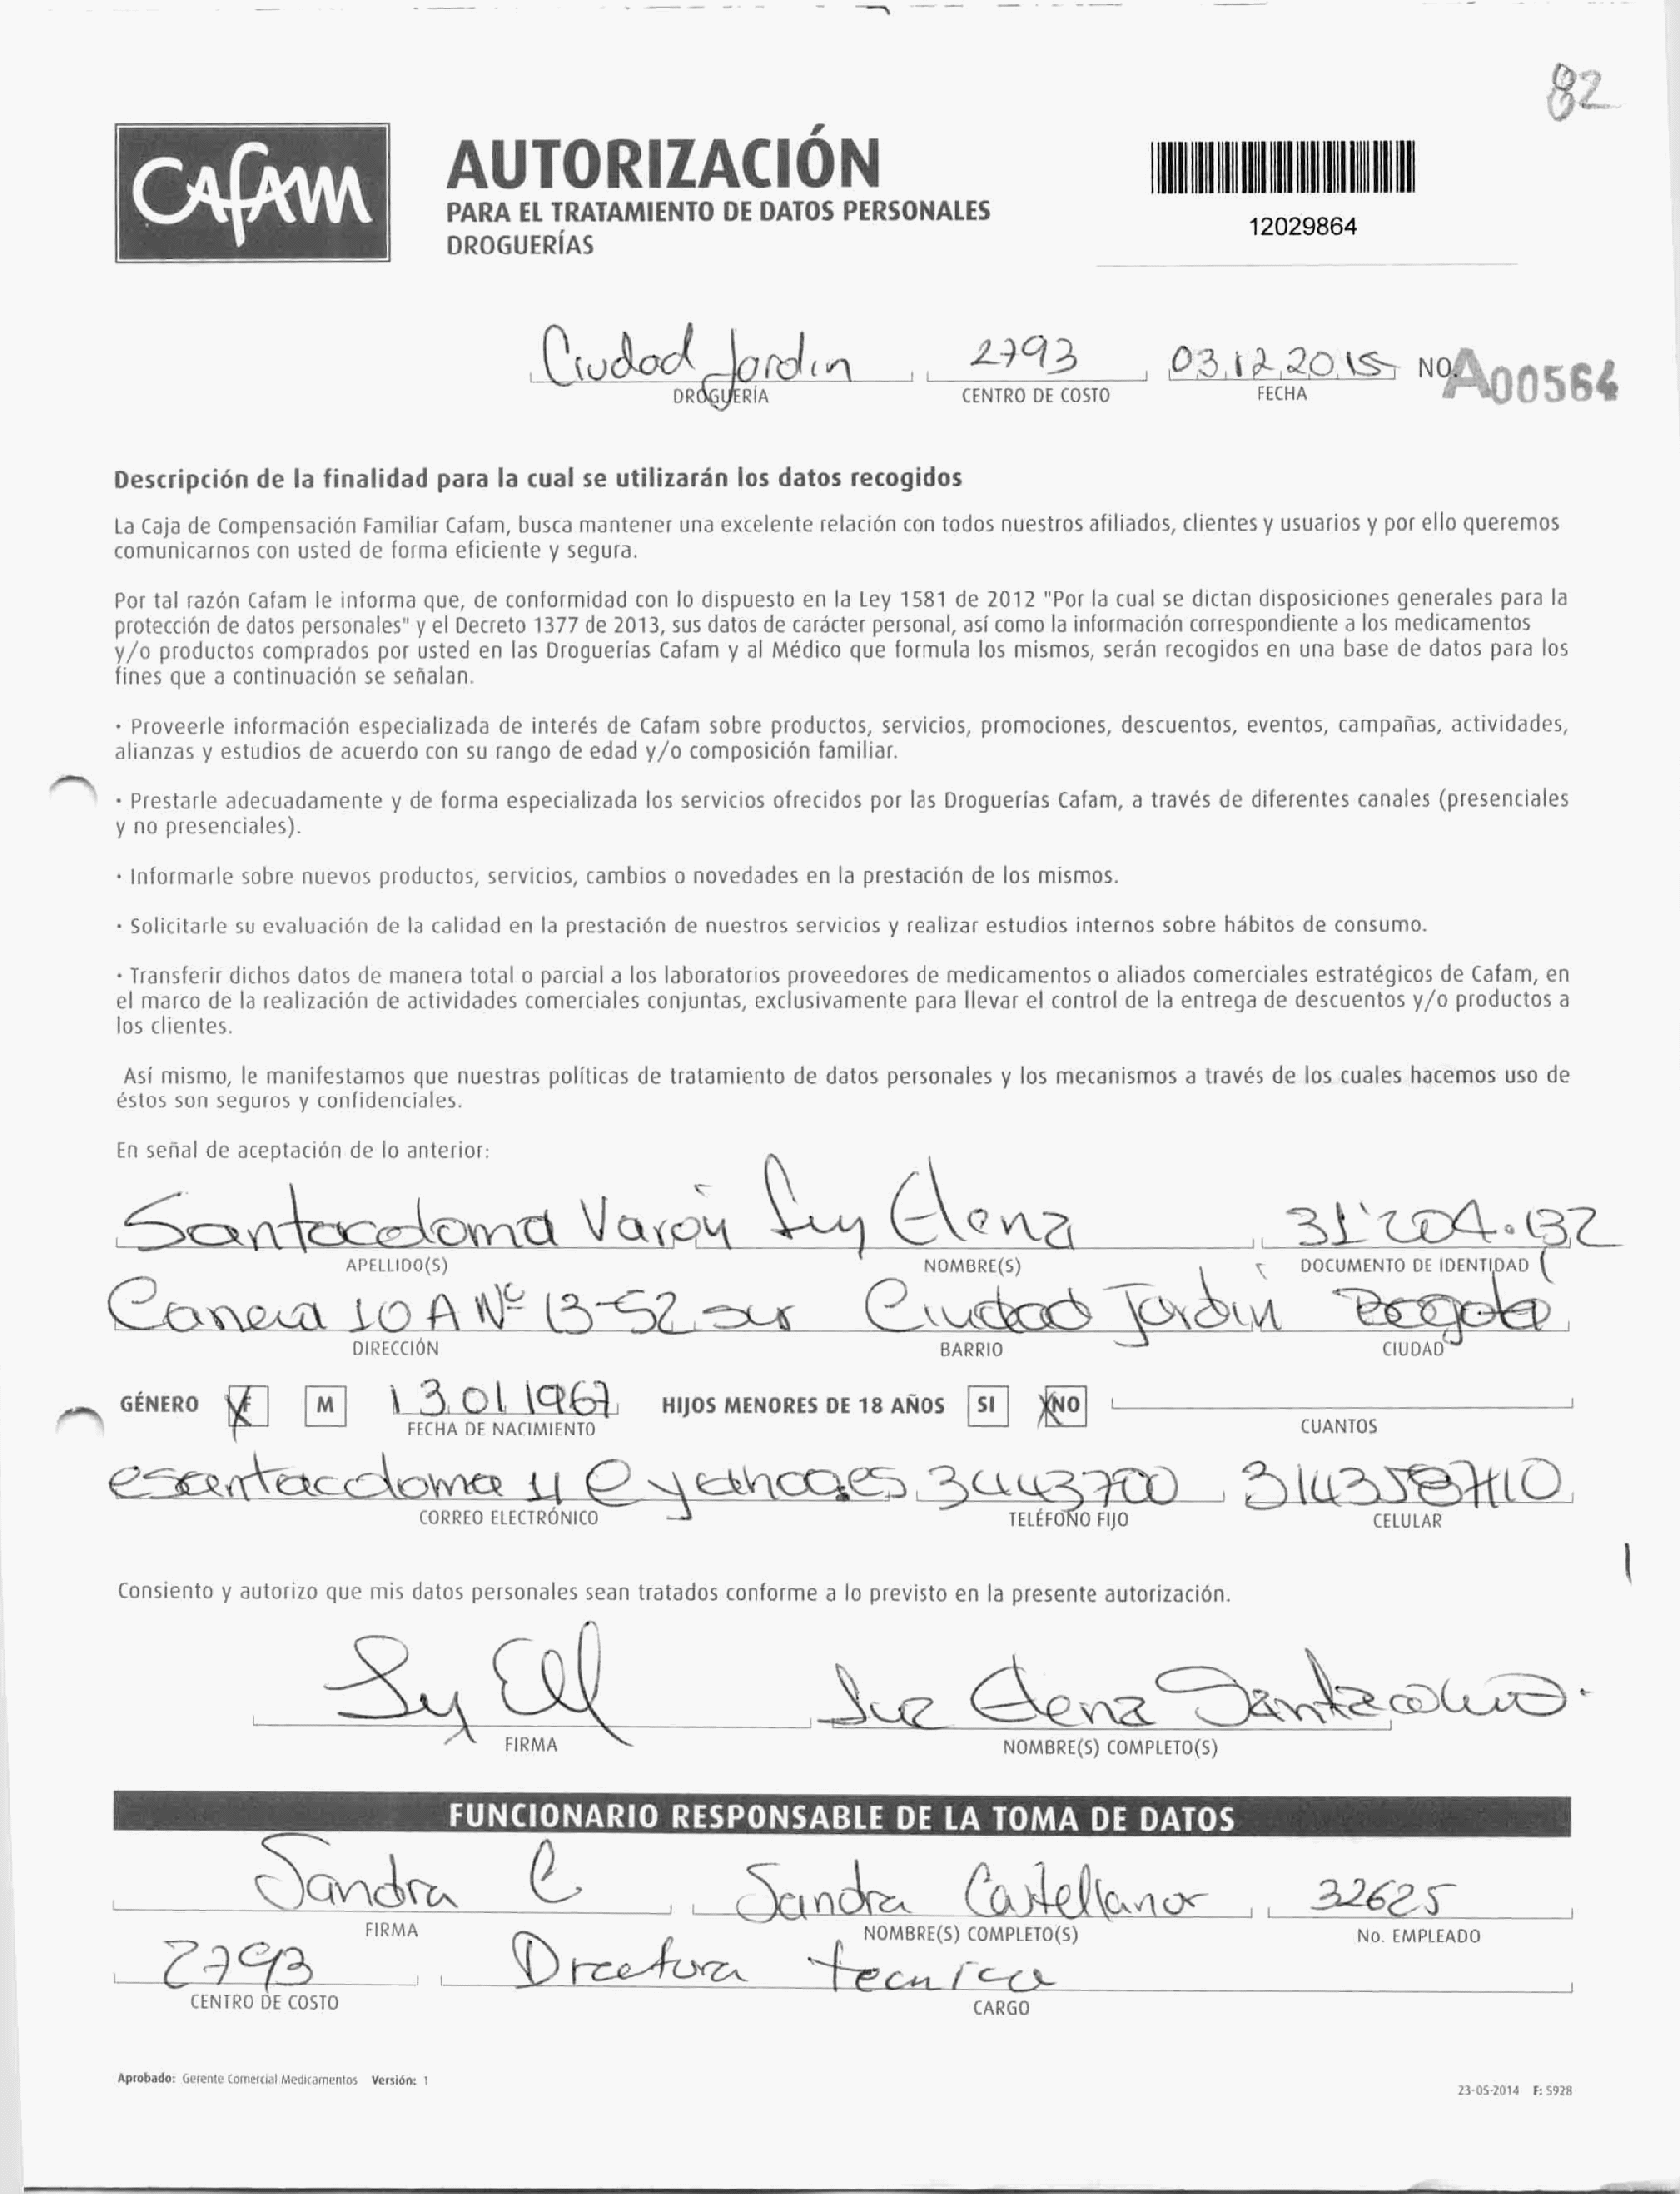 82
CAFAM
AUTORIZACIÓN
PARA EL TRATAMIENTO DE DATOS PERSONALES
DROGUERÍAS
12029864
Ciudad Jardin 2793 03.12.2015 NO. A00564
DROGUERÍA CENTRO DE COSTO FECHA
Descripción de la finalidad para la cual se utilizarán los datos recogidos
La Caja de Compensación Familiar Cafam, busca mantener una excelente relación con todos nuestros afiliados, clientes y usuarios y por ello queremos
comunicarnos con usted de forma eficiente y segura.
Por tal razón Cafam le informa que, de conformidad con lo dispuesto en la Ley 1581 de 2012 "Por la cual se dictan disposiciones generales para la
protección de datos personales" y el Decreto 1377 de 2013, sus datos de carácter personal, así como la información correspondiente a los medicamentos
y/o productos comprados por usted en las Droguerías Cafam y al Médico que formula los mismos, serán recogidos en una base de datos para los
fines que a continuación se señalan.
· Proveerle información especializada de interés de Cafam sobre productos, servicios, promociones, descuentos, eventos, campañas, actividades,
alianzas y estudios de acuerdo con su rango de edad y/o composición familiar.
· Prestarle adecuadamente y de forma especializada los servicios ofrecidos por las Droguerías Cafam, a través de diferentes canales (presenciales
y no presenciales).
· Informarle sobre nuevos productos, servicios, cambios o novedades en la prestación de los mismos.
· Solicitarle su evaluación de la calidad en la prestación de nuestros servicios y realizar estudios internos sobre hábitos de consumo.
· Transferir dichos datos de manera total o parcial a los laboratorios proveedores de medicamentos o aliados comerciales estratégicos de Cafam, en
el marco de la realización de actividades comerciales conjuntas, exclusivamente para llevar el control de la entrega de descuentos y/o productos a
los clientes.
Así mismo, le manifestamos que nuestras políticas de tratamiento de datos personales y los mecanismos a través de los cuales hacemos uso de
éstos son seguros y confidenciales.
En señal de aceptación de lo anterior:
Santacoloma Varón Luz Elena 31'204.132
APELLIDO(S) NOMBRE(S) DOCUMENTO DE IDENTIDAD
Carrera 10 A Nº 13-52 sur Ciudad Jardin Bogota
DIRECCIÓN BARRIO CIUDAD
GÉNERO F M 13.01.1967 HIJOS MENORES DE 18 AÑOS SI NO
FECHA DE NACIMIENTO CUANTOS
3443700
CORREO ELECTRÓNICO TELÉFONO FIJO CELULAR
Consiento y autorizo que mis datos personales sean tratados conforme a lo previsto en la presente autorización.
Luz Elena Santacoloma
FIRMA NOMBRE(S) COMPLETO(S)
FUNCIONARIO RESPONSABLE DE LA TOMA DE DATOS
Sandra C Sandra Castellanos 32625
FIRMA NOMBRE(S) COMPLETO(S) No. EMPLEADO
2793 Drectora tecnica
CENTRO DE COSTO CARGO
Aprobado: Gerente Comercial Medicamentos Versión: 1
23-05-2014 F: 5928